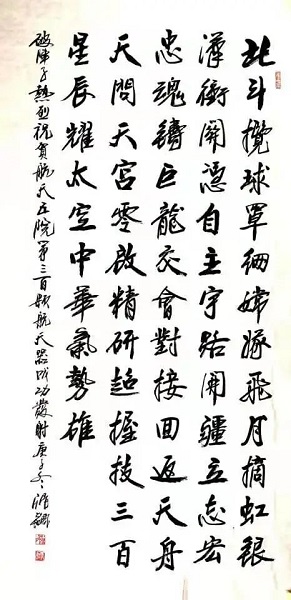 北斗攬球罩網嫦娥飛月摘虹銀
漢衝關憑自主宇路開疆立志宏
忠魂鑄巨龍交會對接回返天舟
天問天宮零啟精研超握技三百
星辰耀太空中華氣勢雄
破陣子熱烈祝賀航天五院第三百顆航天器成功發射庚子冬